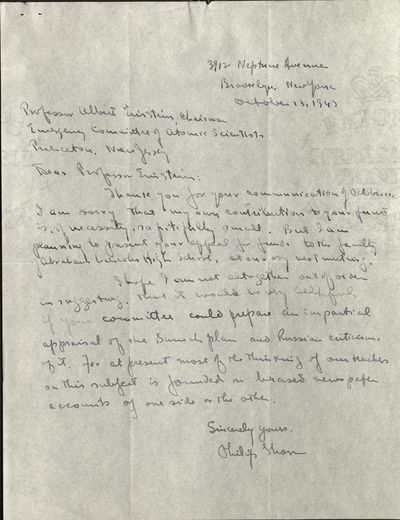 3912 Neptune Avenue
Brooklyn, New York
October 13, 1947
Professor Albert Einstein, Chairman
Emergency Committee of Atomic Scientists
Princeton, New Jersey
Dear Professor Einstein:
Thank you for your communication of October
I am sorry that my own contribution to your funds
is, of necessity, so pitifully small. But I am
planning to present your appeal for funds to the faculty
Abraham Lincoln High School, at our next meeting.
I hope I am not altogether out of order
in suggesting that it would be very helpful
if your committee could prepare an impartial
appraisal of the Baruch plan and Russian criticism
of it. For at present most of the thinking of our teachers
on this subject is founded on biased newspaper
accounts of one side or the other.
Sincerely yours,
Philip